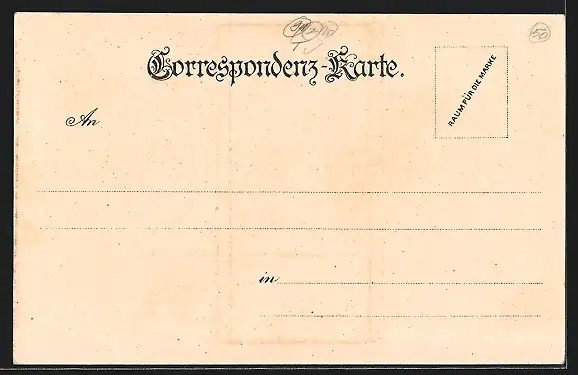 Correspondenz-Karte.
RAUM FÜR DIE MARKE
50
An
in